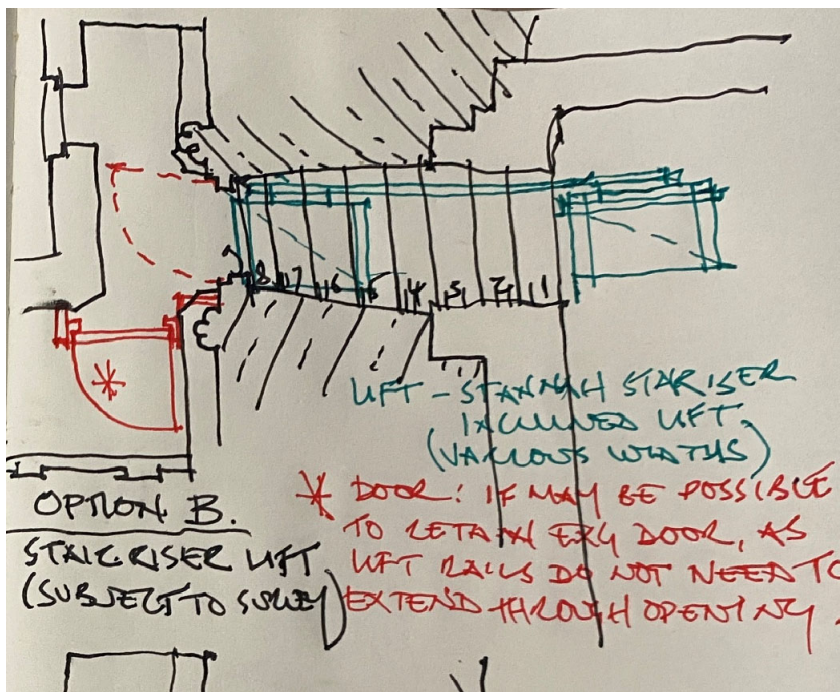 8 7 6 5 4 3 2 1
LIFT – STANNAH STARISER
INCLINED LIFT
(VARIOUS WIDTHS)
* DOOR: IF MAY BE POSSIBLE
TO RETAIN EXG DOOR, AS
LIFT RAILS DO NOT NEED TO
EXTEND THROUGH OPENING.
OPTION B.
STAIRRISER LIFT
(SUBJECT TO SURVEY)
*